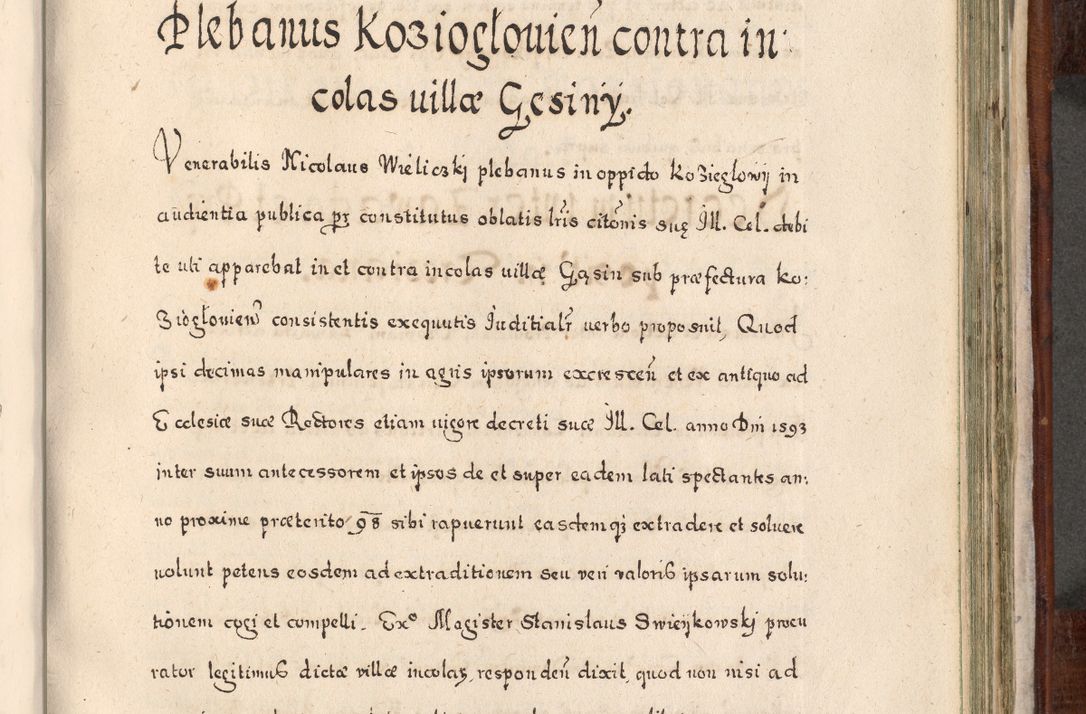 Plebanus Koziogłouień contra in:
colas uillæ Gęsiny.
Venerabilis Nicolaus Wieliczkj plebanus in oppido Koziegłowÿ in
audientia publica pz constitutus oblatis lris citonis suę Ill. Cel. debi
te uti apparebat in et contra incolas uillæ Gęsin sub præfectura Ko:
ziogłouien consistentis exequutis Juditialr uerbo proposuit, Quod
ipsi decimas manipulares in agris ipsorum excrescen et ex antiquo ad
Ecclesiæ suæ Rectores etiam uigore decreti suæ Ill. Cel. anno Dni 1593
inter suum antecessorem et ipsos de et super eadem lati spectantes an:
no proxime præterito 98 sibi rapuerunt easdemqz extradere et soluere
nolunt petens eosdem ad extraditionem seu veri valoris ipsarum solu:
tionem cogi et compelli. Exº Magister Stanislaus Swieÿkowskj procu
rator legitimus dictæ villæ incolaz, responden dixit, quod non nisi ad